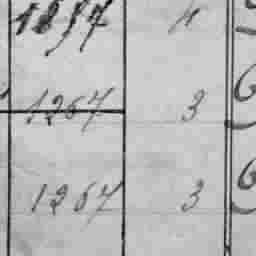 1257 4
1267 3
1267 3